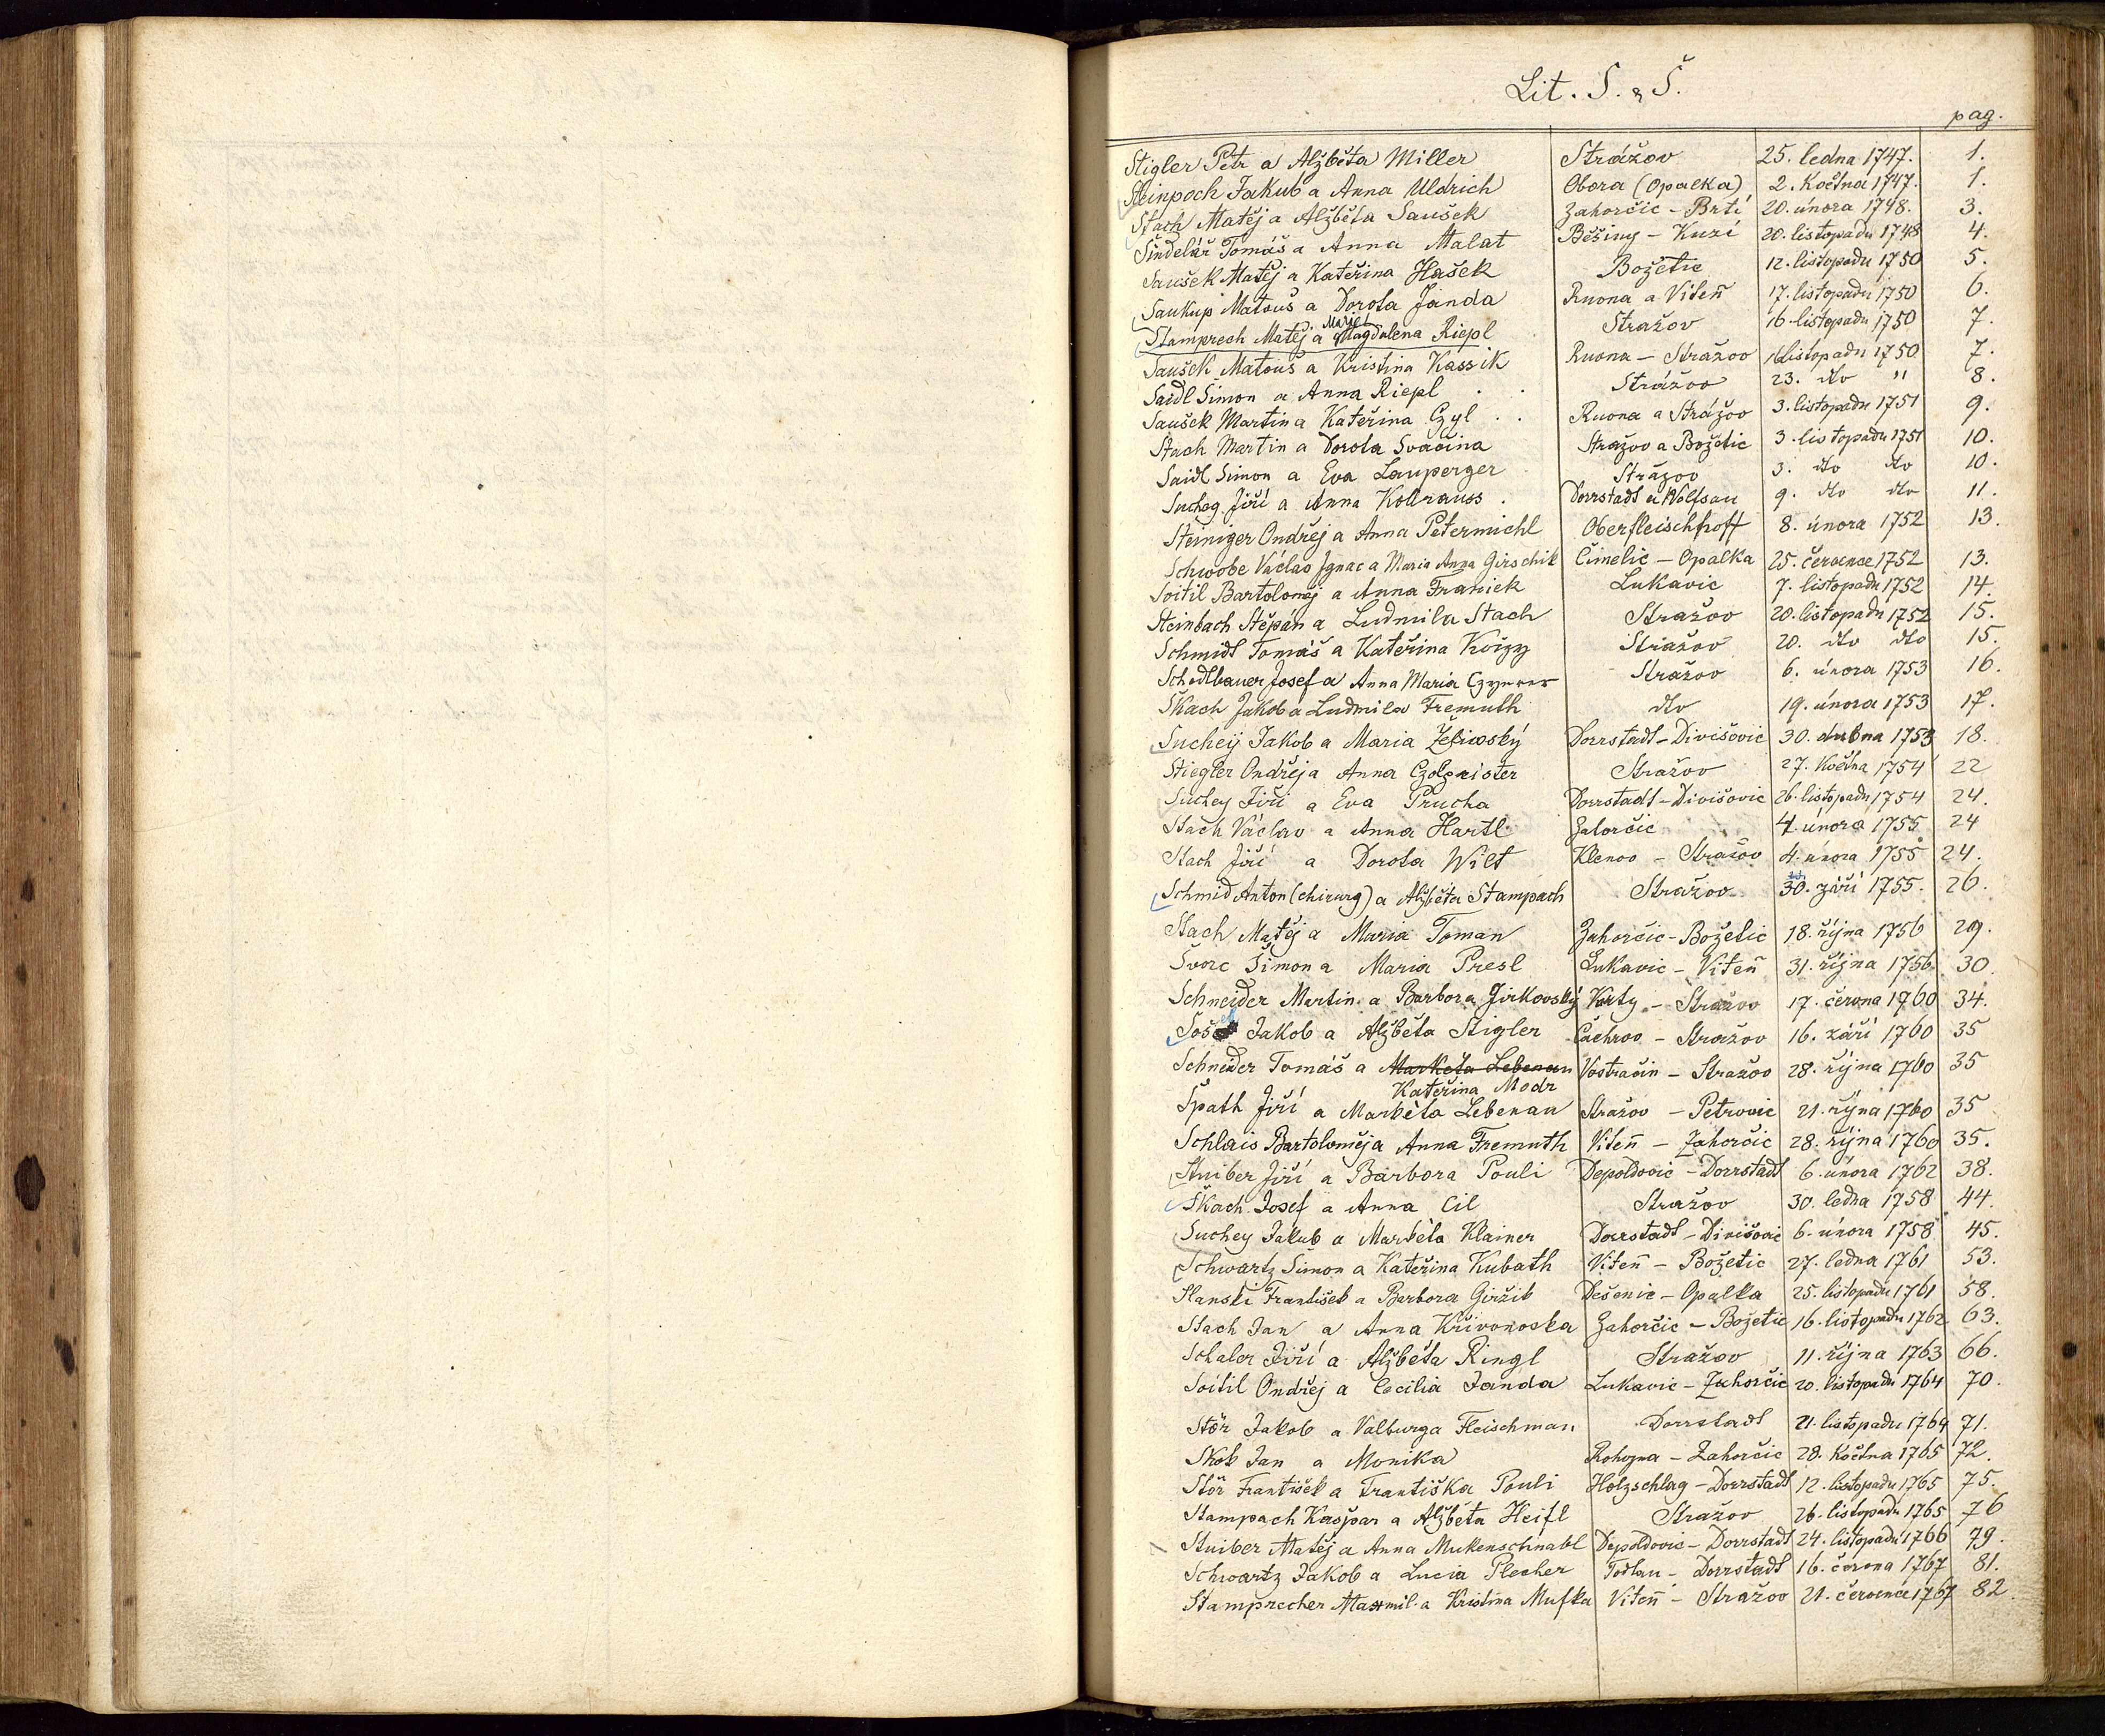 Lit. S. & Š.
pag.
Stigler Petr a Alžběta Miller Strážov 25. ledna 1747. 1.
Steinpoch Jakub a Anna Uldrich Obora (Opalka) 2. května 1747. 1.
Stach Matěj a Alžběta Saušek Zahorčic - Brtí 20. února 1748. 3.
Šindelář Tomáš a Anna Malat Běšiny - Kuzí 20. listopadu 1748 4.
Saušek Matěj a Kateřina Hašek Božetic 12. listopadu 1750 5.
Saukup Matouš a Dorota Janda Ruona a Viteň 17. listopadu 1750 6.
Stamprech Matěj a Magdalena Riepl Stražov 16. listopadu 1750 7.
Saušek Matouš a Kristina Kassik Ruona - Stražov listopadu 1750 7.
Saidl Simon a Anna Riepl Strážov 23. dto " 8.
Saušek Martin a Kateřina Czyl Ruona a Strážov 3. listopadu 1751 9.
Stach Martin a Dorota Svačina Stražov a Božetic 3. listopadu 1751 10.
Saidl Simon a Eva Lauperger Strážov 3. dto dto 10.
Suchey Jiří a Anna Kollrauss Dorrstadt a Wolfsau 9. dto dto 11.
Steiniger Ondřej a Anna Petermichl Oberfleischhoff 8. února 1752 13.
Schwobe Václav Ignac a Maria Anna Girschik Čimelic - Opalka 25. července 1752 13.
Svitil Bartoloměj a Anna Franiek Lukavic 7. listopadu 1752 14.
Steinbach Stěpán a Ludmila Stach Stražov 20. listopadu 1752 15.
Schmidt Tomáš a Kateřina Stražov 20. dto dto 15.
Schedlbauer Josef a Anna Maria Stražov 6. února 1753 16.
Skach Jakob a Ludmila Fremuth dto 19. února 1753 17.
Sucheÿ Jakob a Maria Dorrstadt - Divišovic 30. dubna 1753 18.
Stiegler Ondřej a Anna Stražov 27. května 1754 22
Suchey Jiří a Eva Prucha Dorrstadt - Divišovic 26. listopadu 1754 24.
Stach Václav a Anna Hartl Zahorčic 4. února 1755 24
Stach Jiří a Dorota Wilt Klenov - Stražov 4. února 1755 24.
Schmid Anton (chirurg) a Alžběta Stampach Stražov 30. září 1755. 26.
Stach Matěj a Maria Toman Zahorčic - Božetic 18. října 1756 29.
Švorc Šimon a Maria Presl Lukavic - Viteň 31. října 1756. 30.
Schneider Martin a Barbora Jirkovský Korty - Stražov 17. června 1760 34.
Jakob a Alžběta Stigler Čachrov - Stražov 16. září 1760 35
Schneider Tomáš a Markéta Lebenau Vostračin - Stražov 28. října 1760 35
Kateřina Modr
Špath Jiří a Markéta Lebenau Stražov - Petrovic 21. října 1760 35
Schlais Bartoloměj a Anna Fremuth Viteň - Zahorčic 28. října 1760 35.
Stuiber Jiří a Barbora Pouli Depoldovic - Dorrstadt 6. února 1762 38.
Skach Josef a Anna Cil Stražov 30. ledna 1758 44.
Suchey Jakub a Markéta Klainer Dorrstadt - Divišovic 6. února 1758 45.
Schwartz Simon a Kateřina Kubath Viteň - Božetic 27. ledna 1761 53.
Slanski František a Barbora Giržik Dešenic - Opalka 25. listopadu 1761 58.
Stach Jan a Anna Křivonoska Zahorčic - Božetic 16. listopadu 1762 63.
Schaler Jiří a Alžběta Ringl Stražov 11. října 1763 66.
Svitil Ondřej a Cecilia Janda Lukavic - Zahorčic 20. listopadu 1764 70.
Stör Jakob a Valburga Fleischman Dorrstadt 21. listopadu 1764 71.
Skok Jan a Monika Rohozna - Zahorčic 28. května 1765 72.
Stör František a Františka Pouli Holzschlag - Dorrstadt 12. listopadu 1765 75.
Stampach Kašpar a Alžběta Heifl Stražov 26. listopadu 1765 76
Stuiber Matěj a Anna Mukenschnabl Depoldovic - Dorrstadt 24. listopadu 1766 79.
Schwartz Jakob a Lucia Plecher Todlau - Dorrstadt 16. června 1767 81.
Stamprecher Maxmil. a Kristina Mufka Viteň - Stražov 21. července 1767 82.